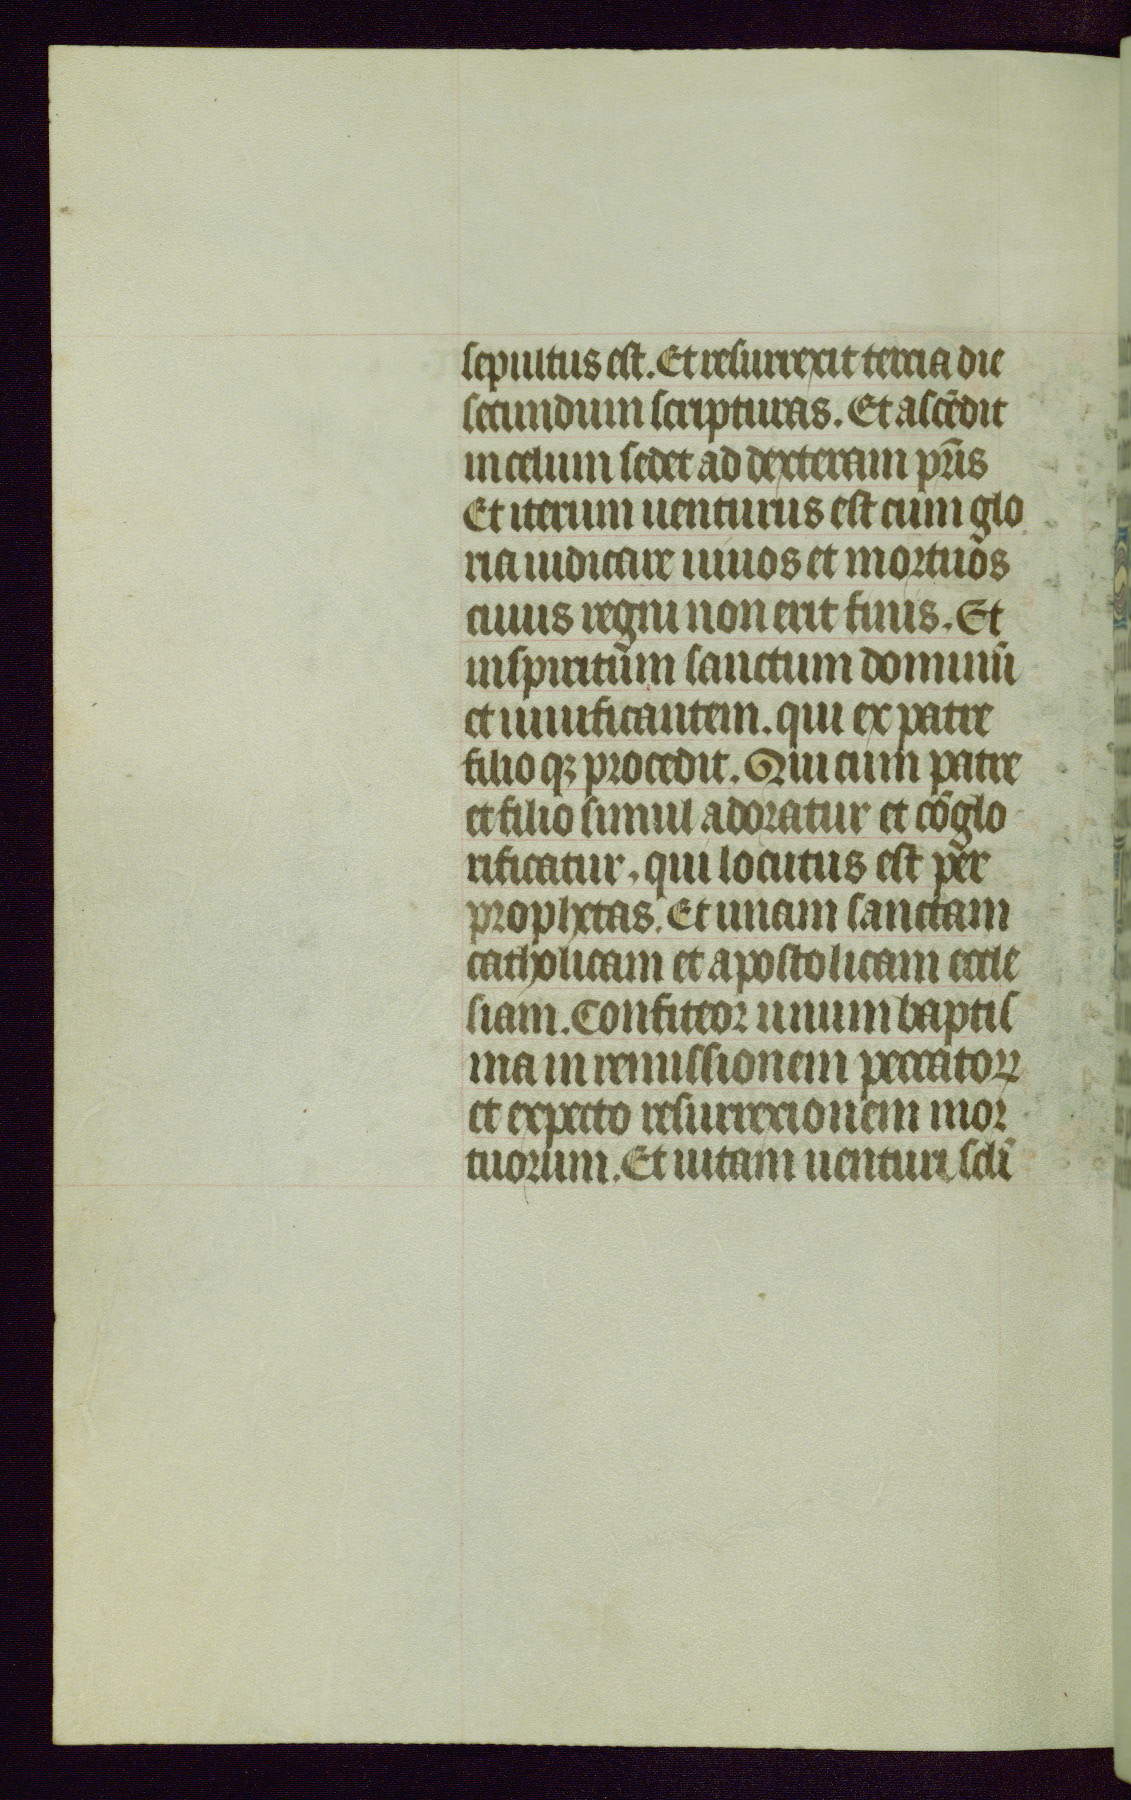 sepultus est. Et resurrexit tercia die
secundum scripturas. Et ascēdit
in celum sedet ad dexteram pr̄is
Et iterum uenturus est cum glo
ria iudicare uiuos et mortuos
cuius regni non erit finis. Et
in spiritum sanctum dominū
et uiuificantem. qui ex patre
filio qꝫ procedit. Qui cum patre
et filio simul adoratur et cōglo
rificatur, qui locutus est per
prophetas. Et unam sanctam
catholicam et apostolicam eccle
siam. Confiteor unum baptis
ma in remissionem peccatoꝝ
et expecto resurrexionem mor
tuorum. Et uitam uenturi scl̄i